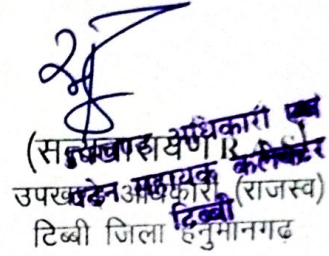 (सत्यनारायण R
उपखण्ड अधिकारी (राजस्व)
टिब्बी जिला हनुमानगढ़
उपखण्ड अधिकारी एवं
पदेन सहायक कलेक्टर
टिब्बी